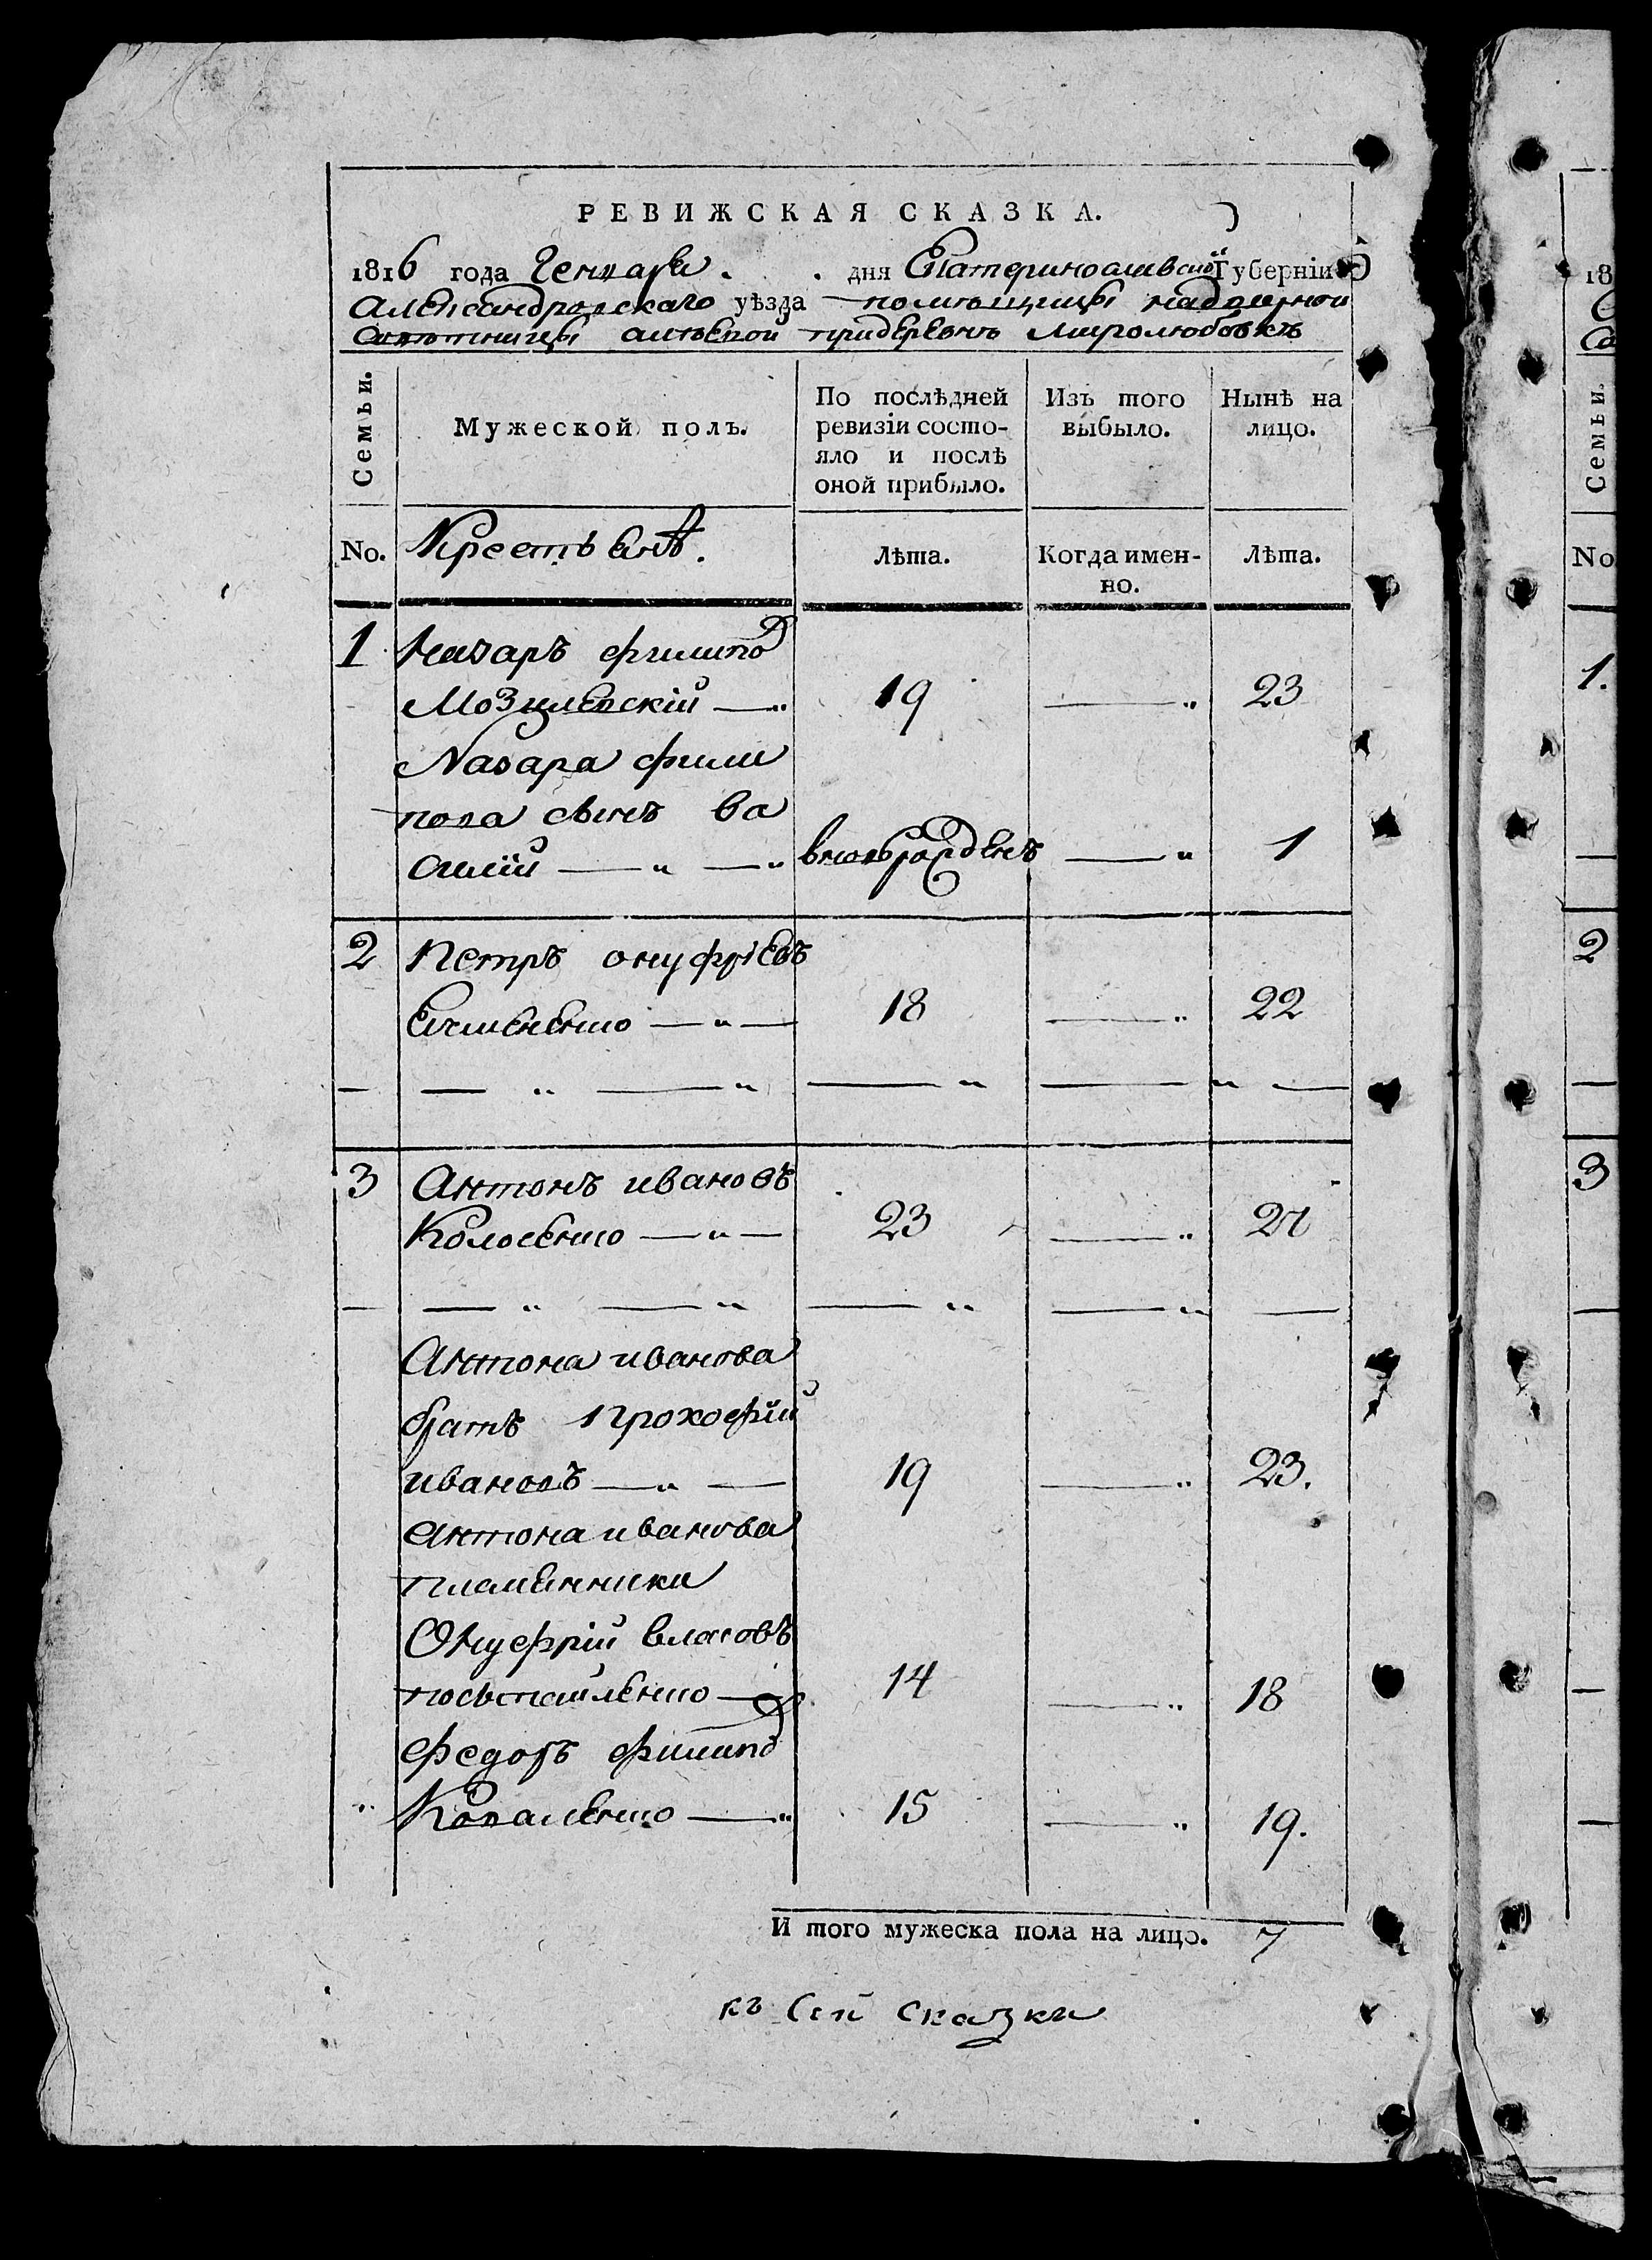 РЕВИЖСКАЯ СКАЗКА.
1816 года Генваря . . дня Екатеринославской Губерніи
Александровскаго уѣзда помѣщицы надворной
совѣтницы придеревнѣ Миролюбовкѣ
Семьи.
Мужеской полъ.
По послѣдней ревизіи состо-
яло и послѣ
оной прибыло.
Изъ того
выбыло.
Нынѣ на
лицо.
No.
Крестьянѣ.
Лѣта.
Когда имен-
но.
Лѣта.
1 Назаръ филипо
Мозилевскій — „ 19 — „ 23
Назара фили
пова сынъ ва
силій — „ — „ вновьрожденъ — „ 1
2 Петръ онуфріевъ
— „ — 18 — „ 22
3 Антонъ ивановъ
Колосенко — „ — 23 — „ 27
Антона иванова
братъ Прохофій
ивановъ — „ — 19 — „ 23.
Антона иванова
племенники
Онуфрій власовъ
— 14 — „ 18
Федоръ филипо
Коваленко — „ 15 — „ 19.
И того мужеска пола на лицо. 7
къ Сей сказки
18
Семьи.
No
1.
2
3